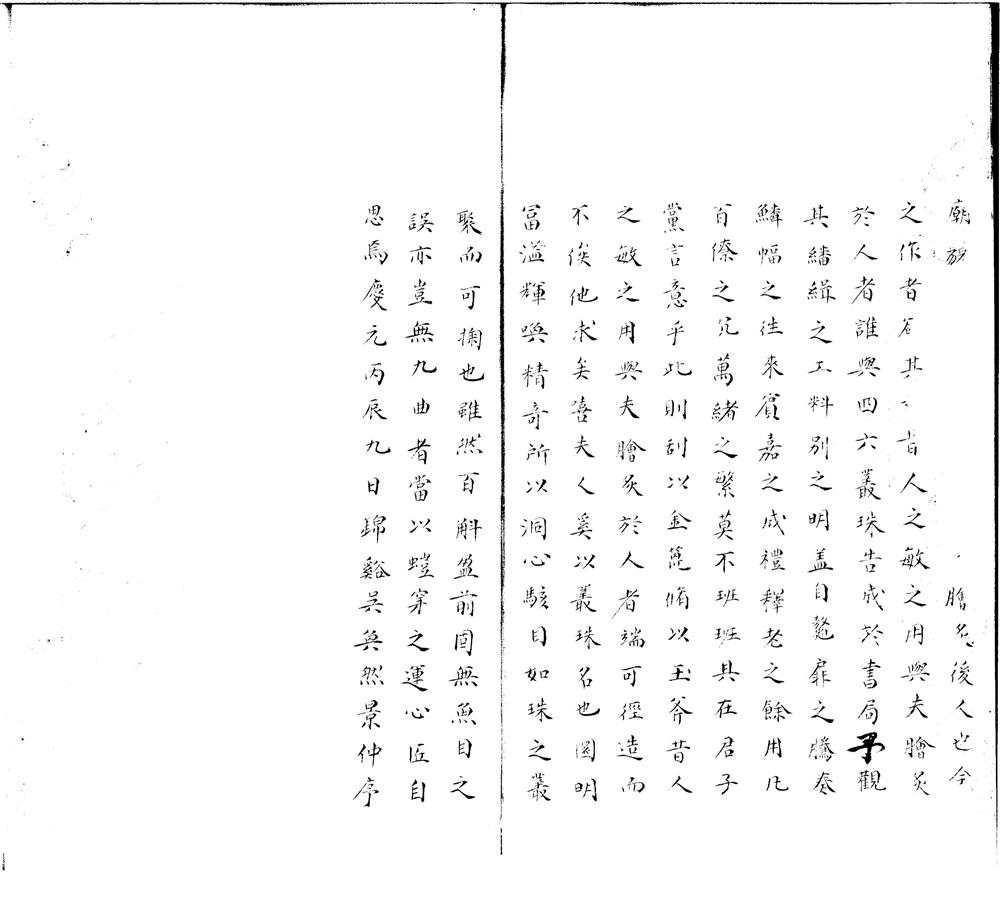 廟貌膾名後人也今
之作者若其昔人之敏之用與夫膾炙
於人者誰與四六叢珠告成於書局予觀
其繙緝之工料別之明蓋自鼇扉之騰奏
鱗幅之往來賓嘉之成禮釋老之餘用凡
百僚之冗萬緒之繁莫不班班具在君子
黨言意乎此則刮以金篦脩以玉斧昔人
之敏之用與夫膾炙於人者端可徑造而
不俟他求矣嘻夫人奚以叢珠名也圓明
冨溢輝喚精奇所以洞心駭目如珠之叢
聚而可掬也雖然百斛盈前固無魚目之
誤亦豈無九曲者當以螘穿之運心匠自
思焉慶元丙辰九日錦谿吳奐然景仲序